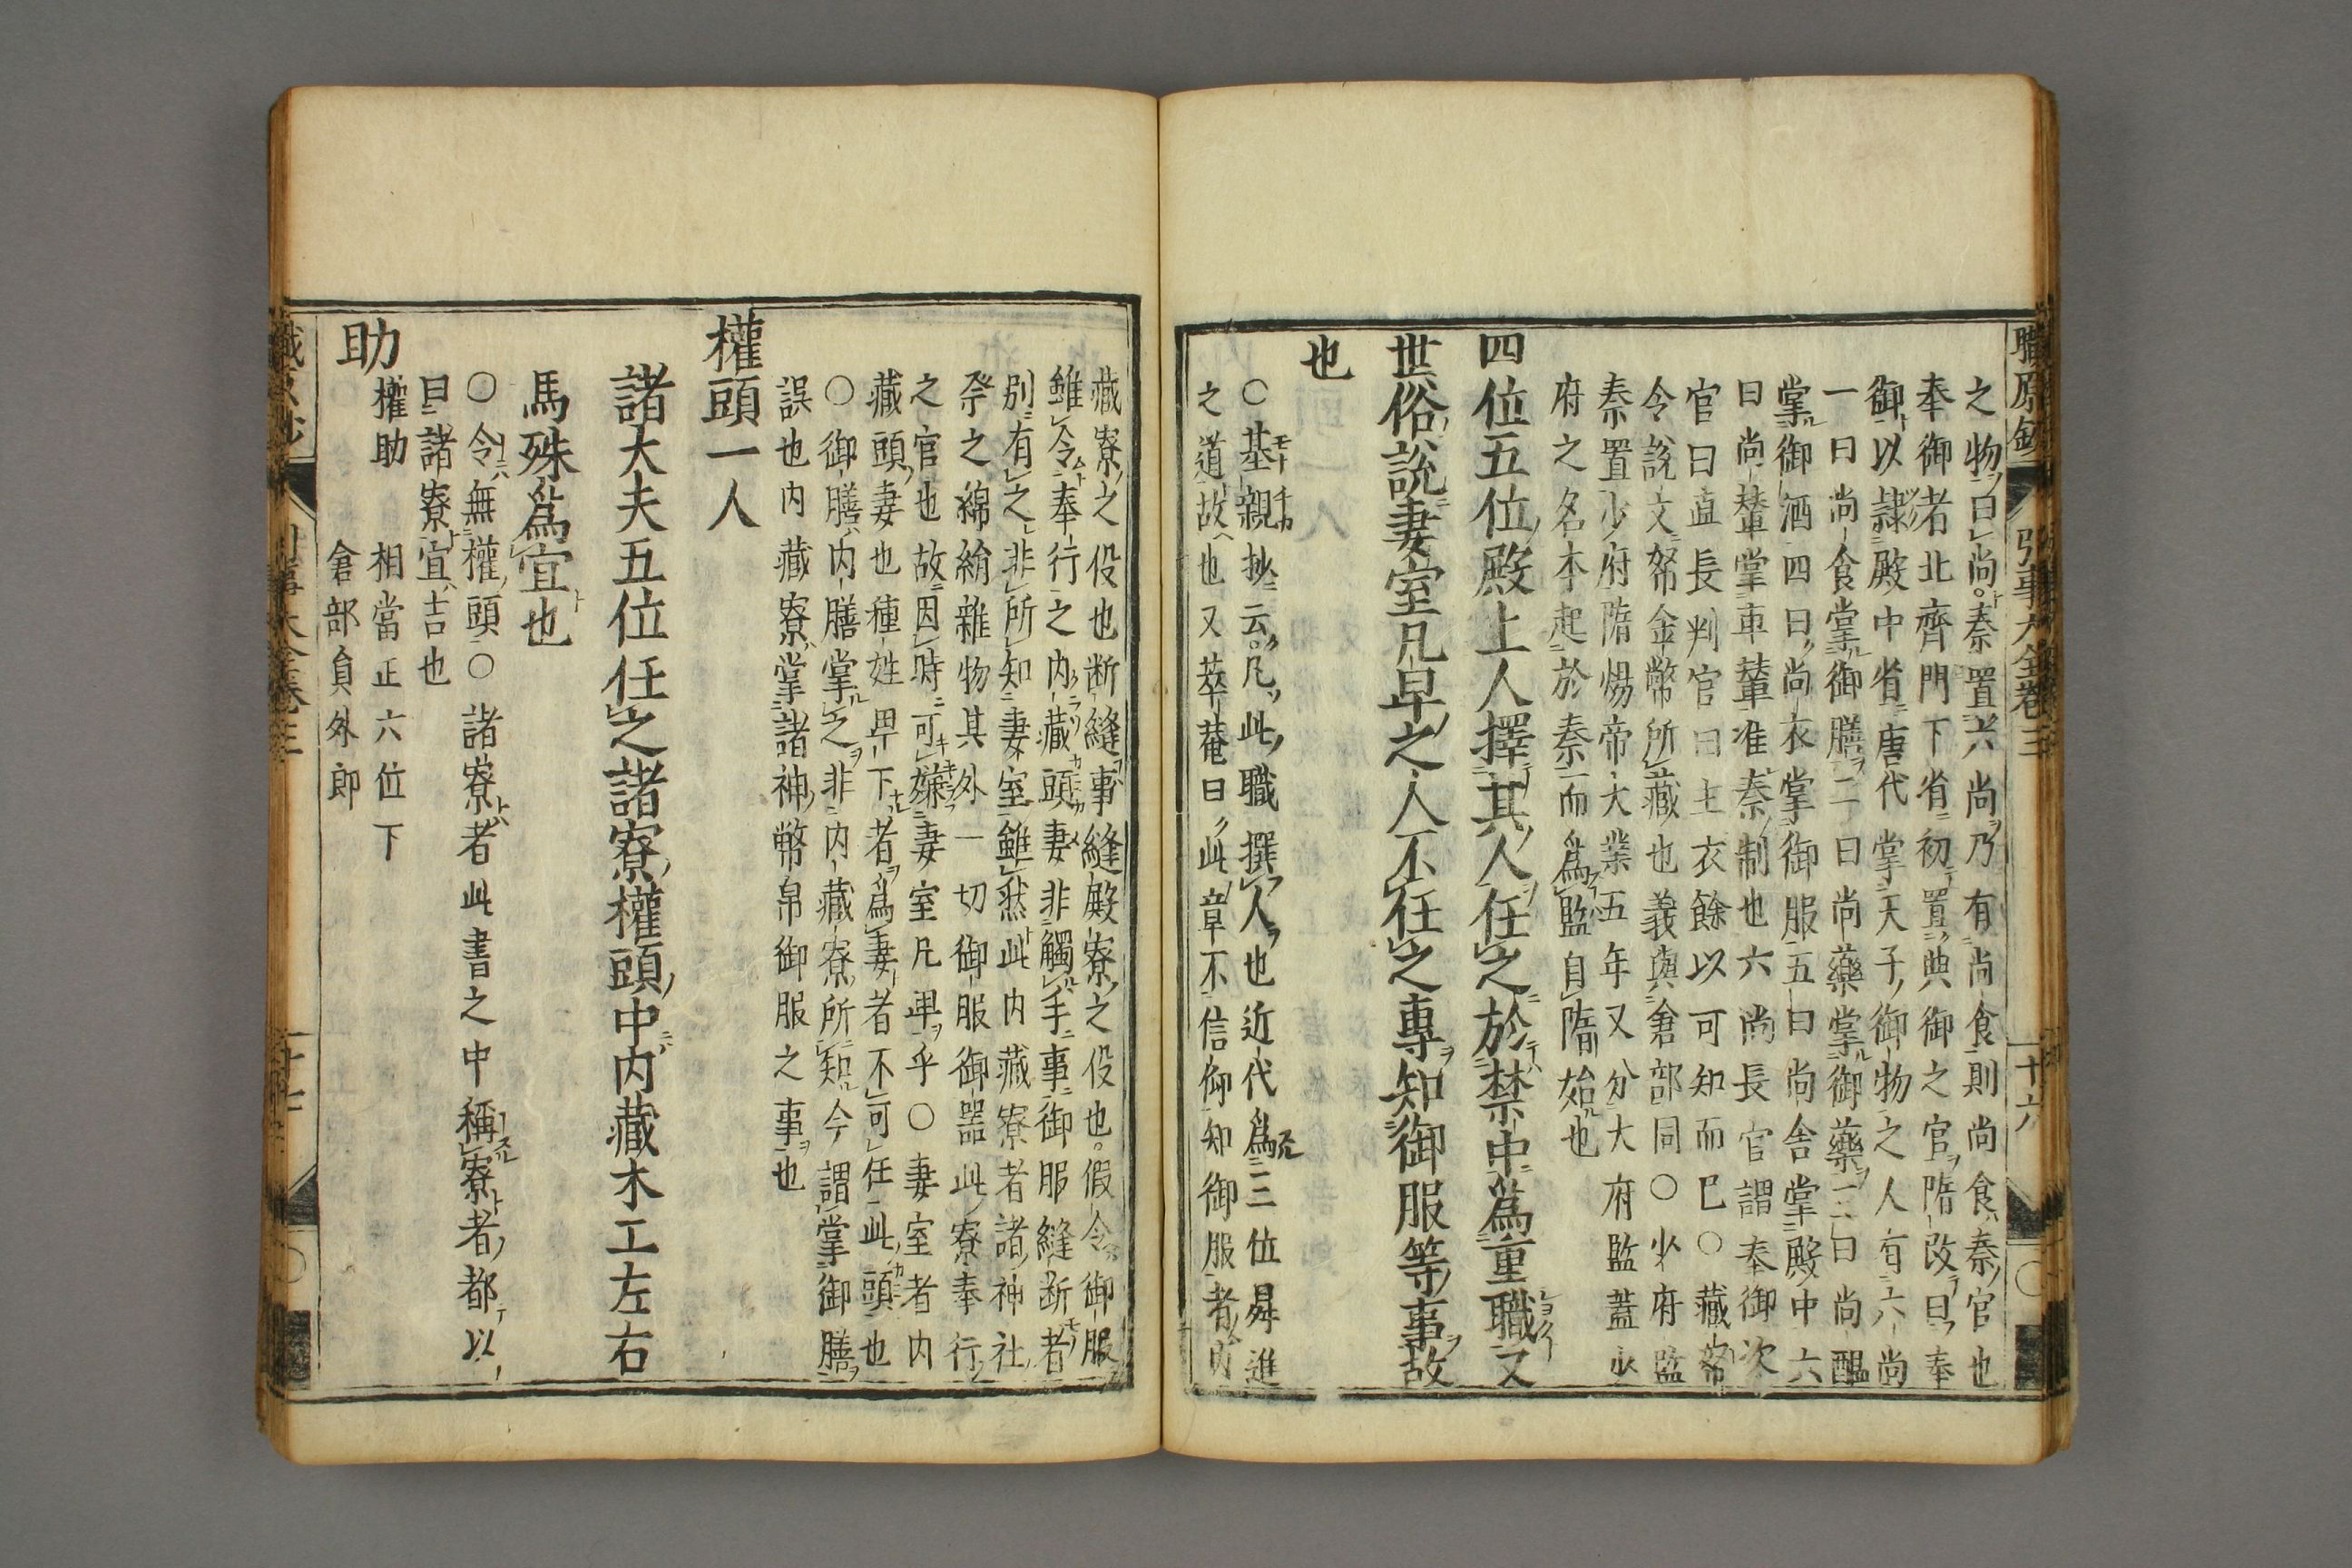 職原鈔 引事大全卷三 十六
之物曰尚秦置六尚乃有尚食則尚食秦官也
奉御者北齊門下省初置典御之官隋改曰奉
御以隷殿中省唐代掌天子御物之人有六尚
一曰尚食掌御膳二曰尚藥掌御藥三曰尚醞
掌御酒四曰尚衣掌御服五曰尚舍掌殿中六
曰尚輦掌車輦准秦制也六尚長官謂奉御次
官曰直長判官曰主衣餘以可知而已○藏帑
令說文帑金幣所藏也義與倉部同○少府監
秦置少府隋煬帝大業五年又分大府監蓋少
府之名本起於秦而爲監自隋始也
四位五位殿上人擇其人任之於禁中爲重職又
世俗說妻室凡卑之人不任之專知御服等事故
也
○基親抄云凡此職撰人也近代爲三位昇進
之道故也又萃菴曰此章不信仰知御服者内
藏寮之役也断縫事縫殿寮之役也假令御服
雖令奉行之内藏頭妻非觸手事御服縫断者
別有之非所知妻室雖然此内藏寮者諸神社
祭之綿綿雜物其外一切御服御器此寮奉行
之官也故因時可嫌妻室凡卑乎○妻室者内
藏頭妻也種姓卑下者爲妻者不可任此頭也
○御膳内膳掌之非内藏寮所知今謂掌御膳
誤也内藏寮掌諸神幣帛御服之事也
權頭一人
諸大夫五位任之諸寮權頭中内藏木工左右
馬殊爲宜也
○令無權頭○諸寮者此書之中稱寮者都以
曰諸寮宜吉也
助
權助 相當正六位下
倉部負外郎
職原鈔 引事大全卷三 十七